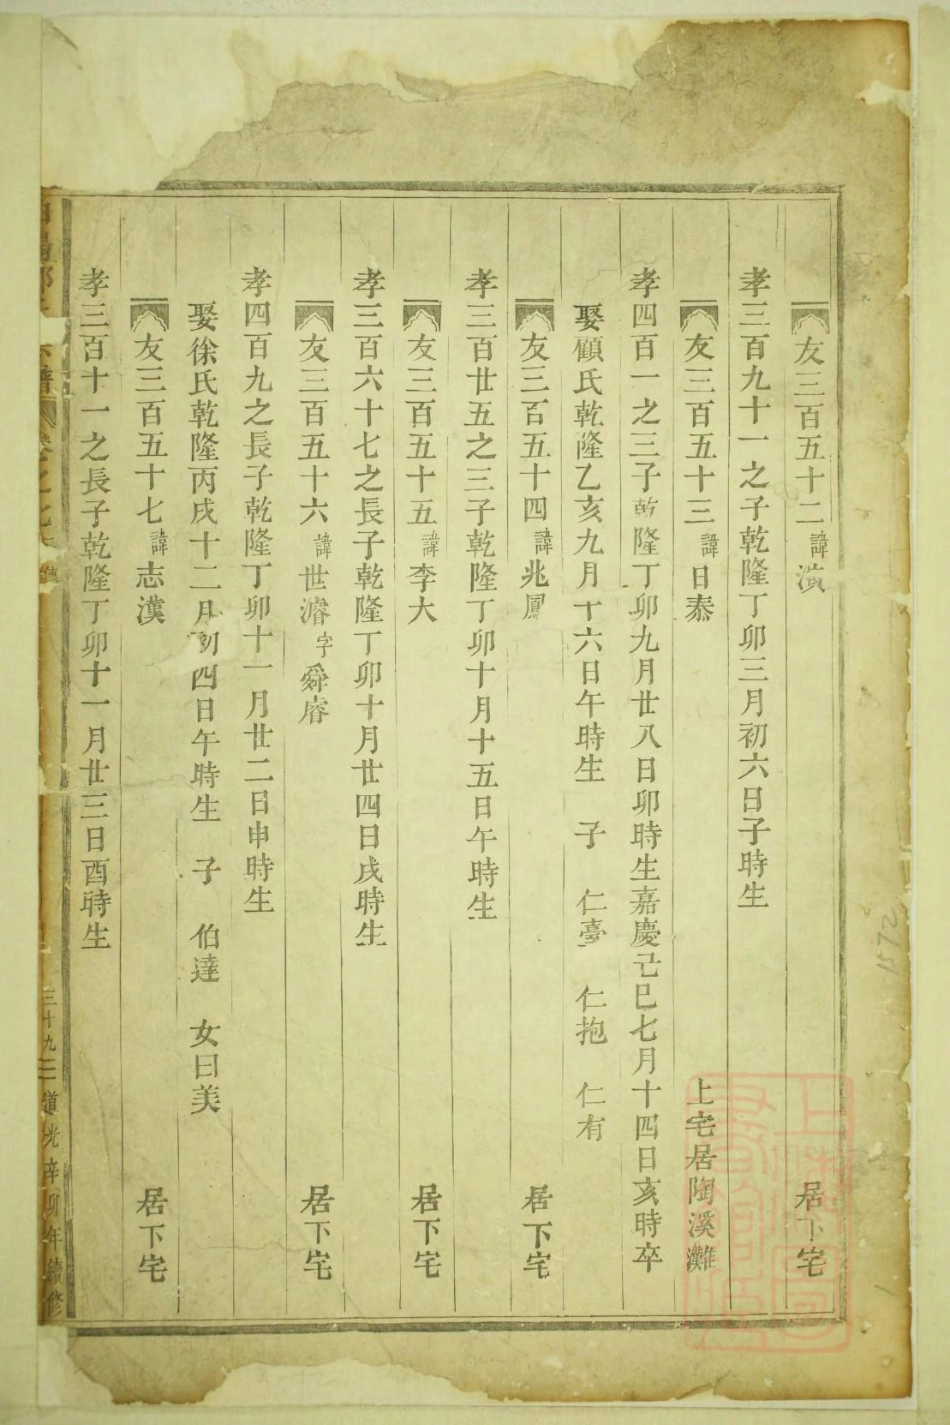 友三百五十二 諱濱 居下宅
孝三百九十一之子乾隆丁卯三月初六日子時生
友三百五十三 諱日泰 上宅居陶溪灘
孝四百一之三子乾隆丁卯九月廿八日卯時生嘉慶己巳七月十四日亥時卒
娶顧氏乾隆乙亥九月十六日午時生 子 仁臺 仁抱 仁有
友三百五十四 諱兆鳳 居下宅
孝三百廿五之三子乾隆丁卯十月十五日午時生
友三百五十五 諱李大 居下宅
孝三百六十七之長子乾隆丁卯十月廿四日戌時生
友三百五十六 諱世濬 字舜睿 居下宅
孝四百九之長子乾隆丁卯十一月廿二日申時生
娶徐氏乾隆丙戌十二月初四日午時生 子 伯達 女曰美
友三百五十七 諱志漢 居下宅
孝三百十一之長子乾隆丁卯十一月廿三日酉時生
三十九 道光辛卯年續修